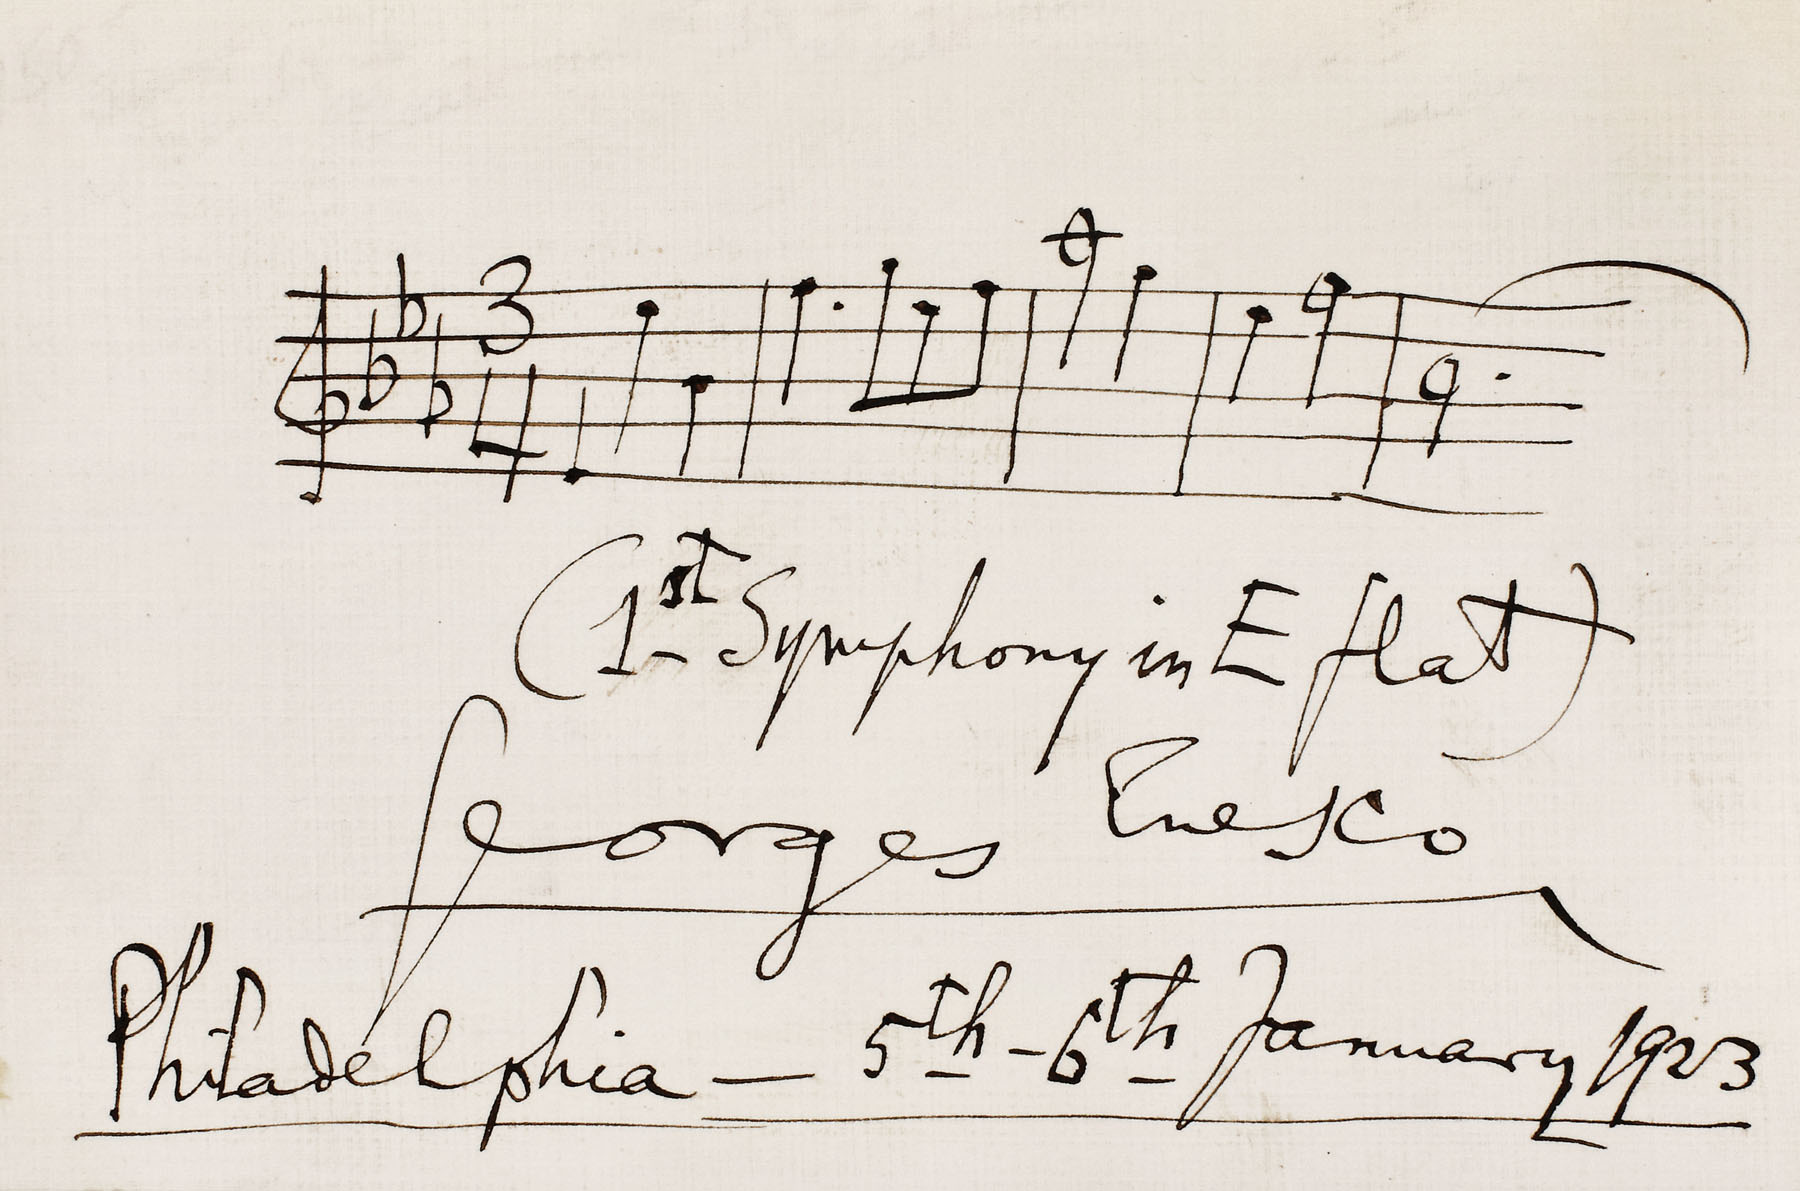 3
4
(1st Symphony in E flat)
Georges Enesco
Philadelphia — 5th - 6th January 1923